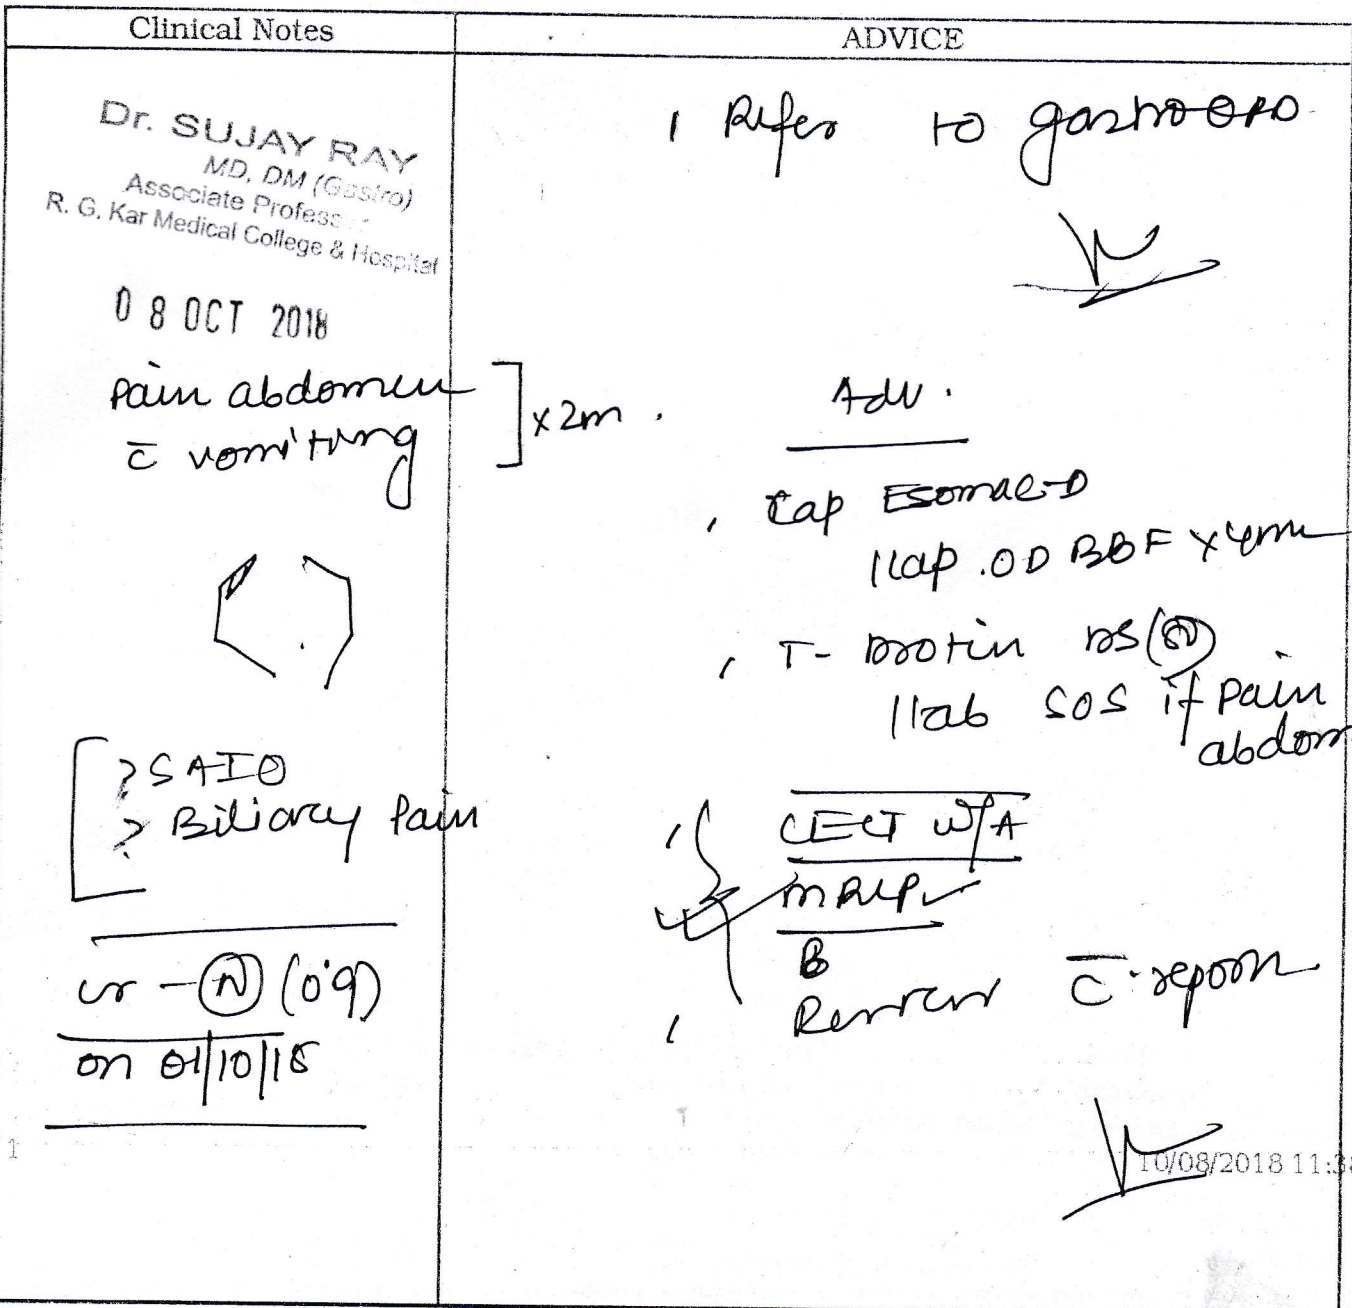 Clinical Notes
ADVICE
Dr. SUJAY RAY
MD, DM (Gastro)
Associate Profess
R. G. Kar Medical College & Hospital
08 OCT 2018
Pain abdomen
c̄ vomiting ] x 2m.
? SAIO
? Biliary Pain
cr - (N) (0.9)
on 01/10/18
1 Refer to gastro OPD
Adv.
Cap Esomac-D
1 cap. OD BBF x 4
T- Drotin DS
1 tab SOS if pain
abdom
CECT W/A
MRCP
Review c̄ report
1
10/08/2018 11:38